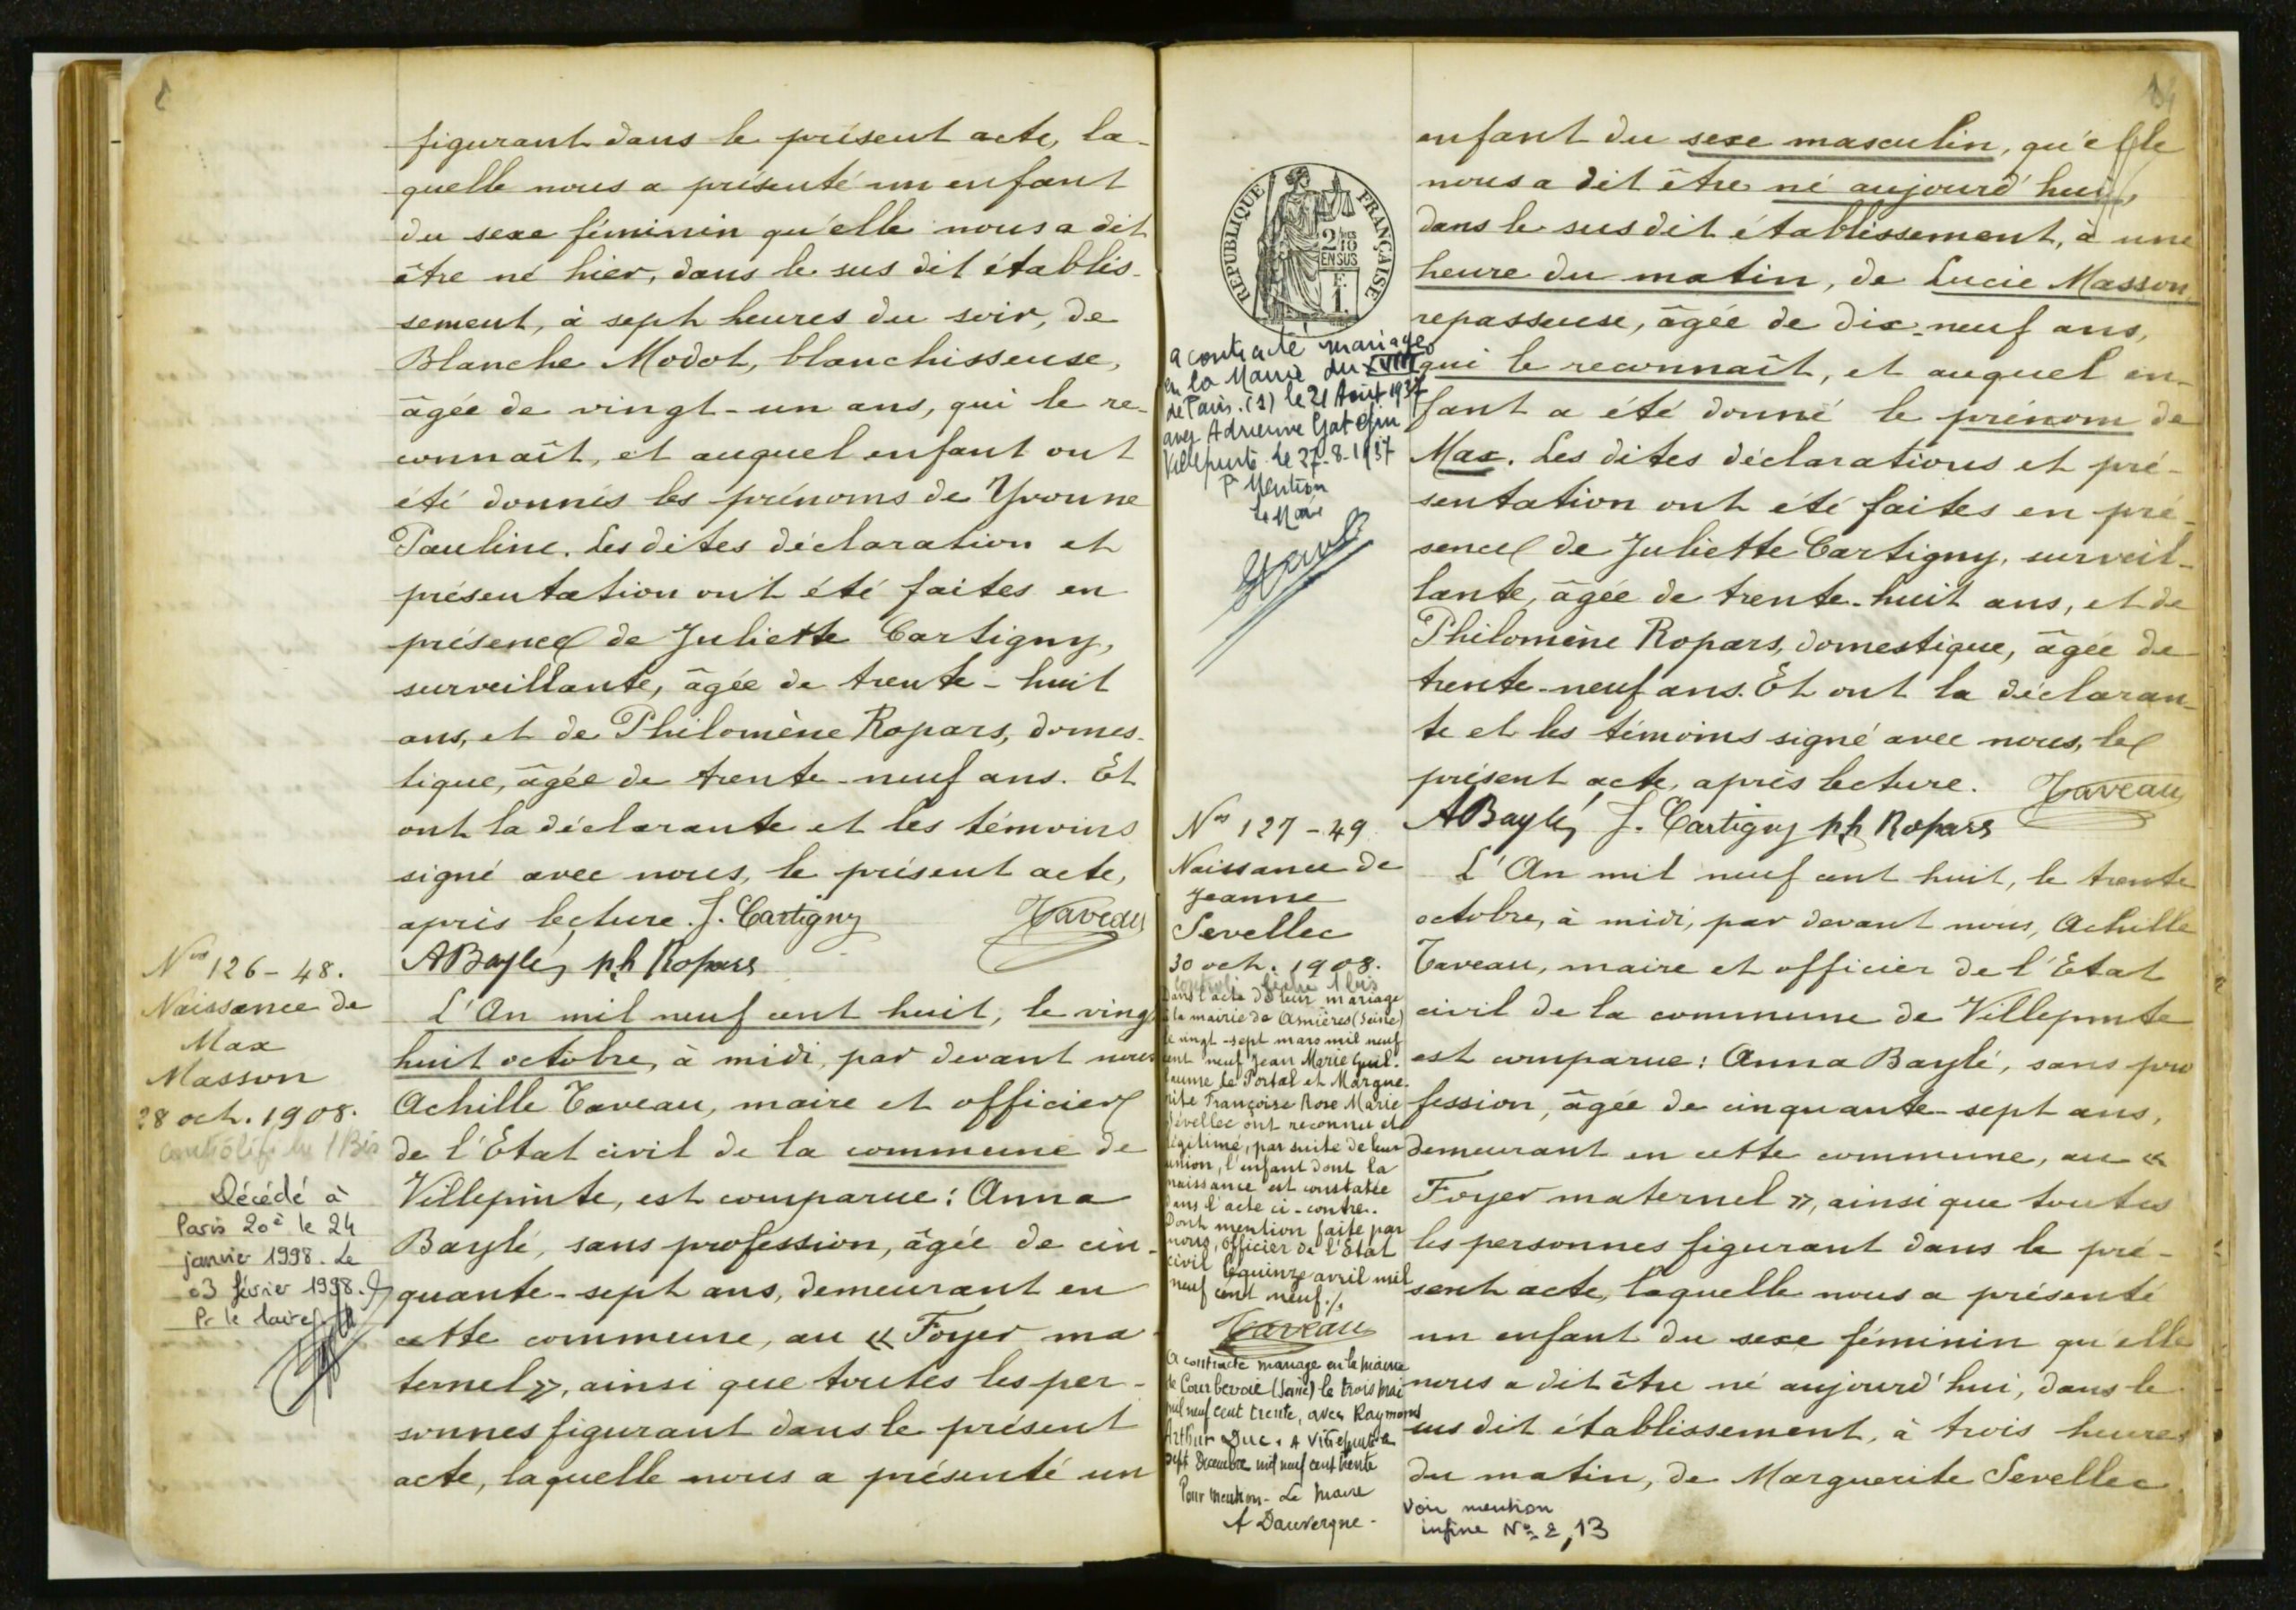 figurant dans le présent acte, la-
quelle nous a présenté un enfant
du sexe féminin qu'elle nous a dit
être né hier, dans le sus dit établis-
sement, à sept heures du soir, de
Blanche Modot, blanchisseuse,
âgée de vingt-un ans, qui le re-
connaît, et auquel enfant ont
été donnés les prénoms de Yvonne
Pauline. Les dites déclaration et
présentation ont été faites en
présence de Juliette Cartigny,
surveillante, âgée de trente-huit
ans, et de Philomène Ropars, domes-
tique, âgée de trente-neuf ans. Et
ont la déclarante et les témoins
signé avec nous, le présent acte,
après lecture. J. Cartigny Taveau
ABaylé, ph Ropars
Nos 126-48.
Naissance de
Max
Masson
28 oct. 1908.
Décédé à
Paris 20è le 24
janvier 1998. Le
03 février 1998.
Pr le Maire
L'An mil neuf cent huit, le vingt
huit octobre, à midi, par devant nous
Achille Taveau, maire et officier
de l'Etat civil de la commune de
Villepinte, est comparue: Anna
Baylé, sans profession, âgée de cin-
quante-sept ans, demeurant en
cette commune, au « Foyer ma-
ternel », ainsi que toutes les per-
sonnes figurant dans le présent
acte, laquelle nous a présenté un
REPUBLIQUE FRANÇAISE
2/10
EN SUS
F.
1.
enfant du sexe masculin, qu'elle
nous a dit être né aujourd'hui,
dans le susdit établissement, à une
heure du matin, de Lucie Masson
repasseuse, âgée de dix-neuf ans,
qui le reconnaît, et auquel en-
fant a été donné le prénom de
Max. Les dites déclarations et pré-
sentation ont été faites en pré-
sence de Juliette Cartigny, surveil-
lante, âgée de trente-huit ans, et de
Philomène Ropars, domestique, âgée de
trente-neuf ans. Et ont la déclaran-
te et les témoins signé avec nous, le
présent acte, après lecture. Taveau
ABaylé, J. Cartigny ph Ropars
A contracté mariage
en la Mairie du XVIII
de Paris. (1) le 21 Août 1937
avec Adrienne
Villepinte le 27-8-1937
Pr Mention
Le Maire
Nos 127-49
Naissance de
Jeanne
Sevellec
30 oct. 1908.
Dans l'acte de leur mariage
à la mairie de Asnières (Seine)
le vingt-sept mars mil neuf
cent neuf Jean Marie Guil-
laume Le Portal et Margue-
rite Françoise Rose Marie
Sévellec ont reconnu et
légitimé, par suite de leur
union, l'enfant dont la
naissance est constatée
dans l'acte ci-contre.
Dont mention faite par
nous, officier de l'Etat
civil le quinze avril mil
neuf cent neuf./.
Taveau
A contracté mariage en la mairie
de Courbevoie (Seine) le trois mai
mil neuf cent trente, avec Raymond
Arthur Duc. A Villepinte le
sept Décembre mil neuf cent trente
Pour mention - Le Maire
A Dauvergne-
L'An mil neuf cent huit, le trente
octobre, à midi, par devant nous, Achille
Taveau, maire et officier de l'Etat
civil de la commune de Villepinte
est comparue: Anna Baylé, sans pro
fession, âgée de cinquante-sept ans,
demeurant en cette commune, au «
Foyer maternel », ainsi que toutes
les personnes figurant dans le pré-
sent acte, laquelle nous a présenté
un enfant du sexe féminin qu'elle
nous a dit être né aujourd'hui, dans le
sus dit établissement, à trois heures
du matin, de Marguerite Sevellec
Voir mention
infine No 2, 13